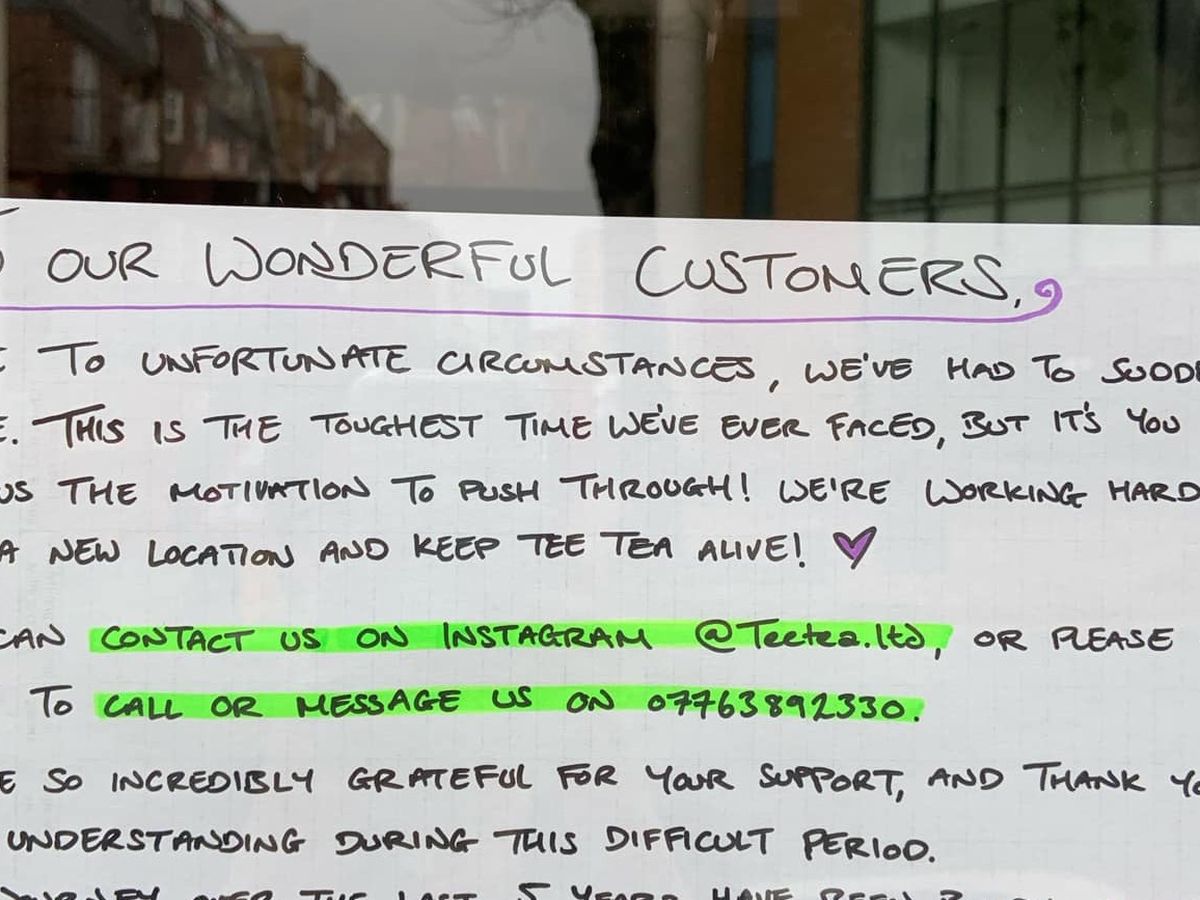 OUR WONDERFUL CUSTOMERS,
TO UNFORTUNATE CIRCUMSTANCES, WE'VE HAD TO SUDD
E. THIS IS THE TOUGHEST TIME WE'VE EVER FACED, BUT IT'S YOU
US THE MOTIVATION TO PUSH THROUGH! WE'RE WORKING HARD
A NEW LOCATION AND KEEP TEE TEA ALIVE!
CAN CONTACT US ON INSTAGRAM @Teetea.ltd, OR PLEASE
TO CALL OR MESSAGE US ON 07763892330.
E SO INCREDIBLY GRATEFUL FOR YOUR SUPPORT, AND THANK YO
UNDERSTANDING DURING THIS DIFFICULT PERIOD.
OVER THE LAST 5 YEARS HAVE BEEN